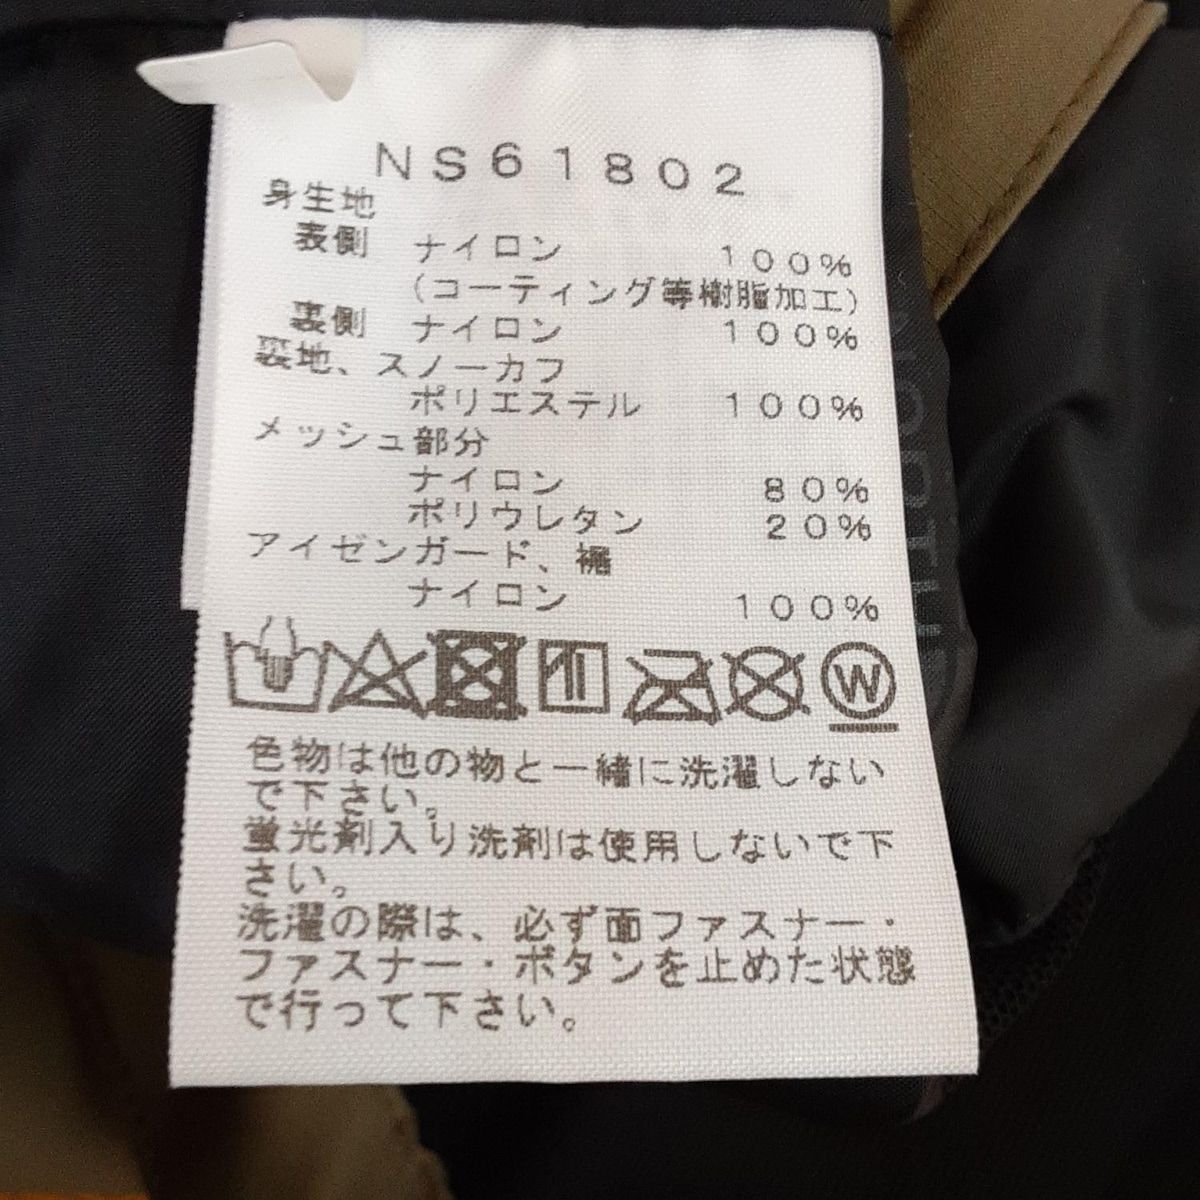 NS61802
身生地
表側 ナイロン 100%
(コーティング等樹脂加工)
裏側 ナイロン 100%
裏地、スノーカフ
ポリエステル 100%
メッシュ部分
ナイロン 80%
ポリウレタン 20%
アイゼンガード、裾
ナイロン 100%
W
色物は他の物と一緒に洗濯しない
で下さい。
蛍光剤入り洗剤は使用しないで下
さい。
洗濯の際は、必ず面ファスナー・
ファスナー・ボタンを止めた状態
で行って下さい。